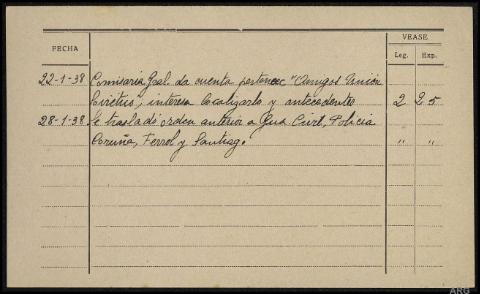 VEASE
FECHA Leg. Exp.
22-1-38 Comisaria Gral. da cuenta pertenece "Amigos Unión
Sovietica", interesa localizarlo y antecedentes 2 25
28-1-38 Se trasladó orden anterior a Gua Civil, Policia
Coruña, Ferrol y Santiag. " "
ARG